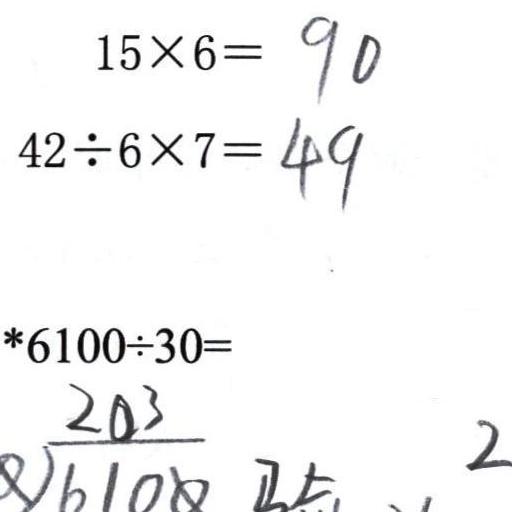 15×6= 90
42÷6×7= 49
*6100÷30=
203
6100
2